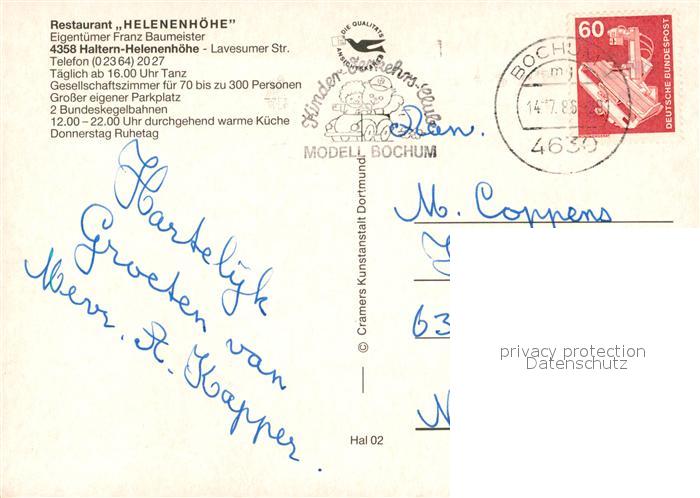 Restaurant „HELENENHÖHE"
Eigentümer Franz Baumeister
4358 Haltern-Helenenhöhe - Lavesumer Str.
Telefon (0 23 64) 20 27
Täglich ab 16.00 Uhr Tanz
Gesellschaftszimmer für 70 bis zu 300 Personen
Großer eigener Parkplatz
2 Bundeskegelbahnen
12.00 – 22.00 Uhr durchgehend warme Küche
Donnerstag Ruhetag
Hartelijk
Groeten van
Mevr. A. Kapper.
DIE QUALITÄTS
ANSICHTSKARTE
Kinder-Verkehrs-Club
MODELL BOCHUM
BOCHUM
4630
60
DEUTSCHE BUNDESPOST
© Cramers Kunstanstalt Dortmund
Hal 02
M. Coppens
63
N
privacy protection
Datenschutz